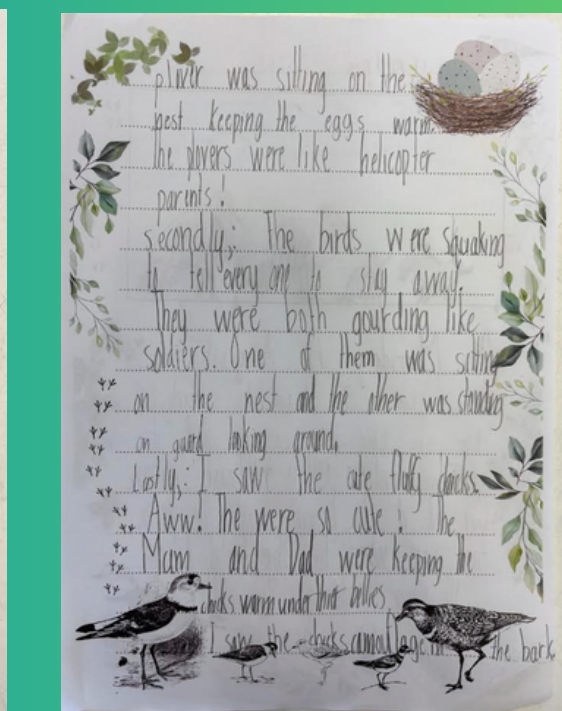 pliver was sitting on the
nest keeping the eggs warm.
The plovers were like helicopter
parents!
secondly,: The birds were squaking
to tell every one to stay away.
They were both gourding like
soldiers. One of them was sitting
on the nest and the other was standing
on guard looking around.
Lastly,: I saw the cute fluffy chicks.
Aww! The were so cute! The
Mam and Dad were keeping the
chicks warm under thier bellies
I saw the chicks camouflage the bark.